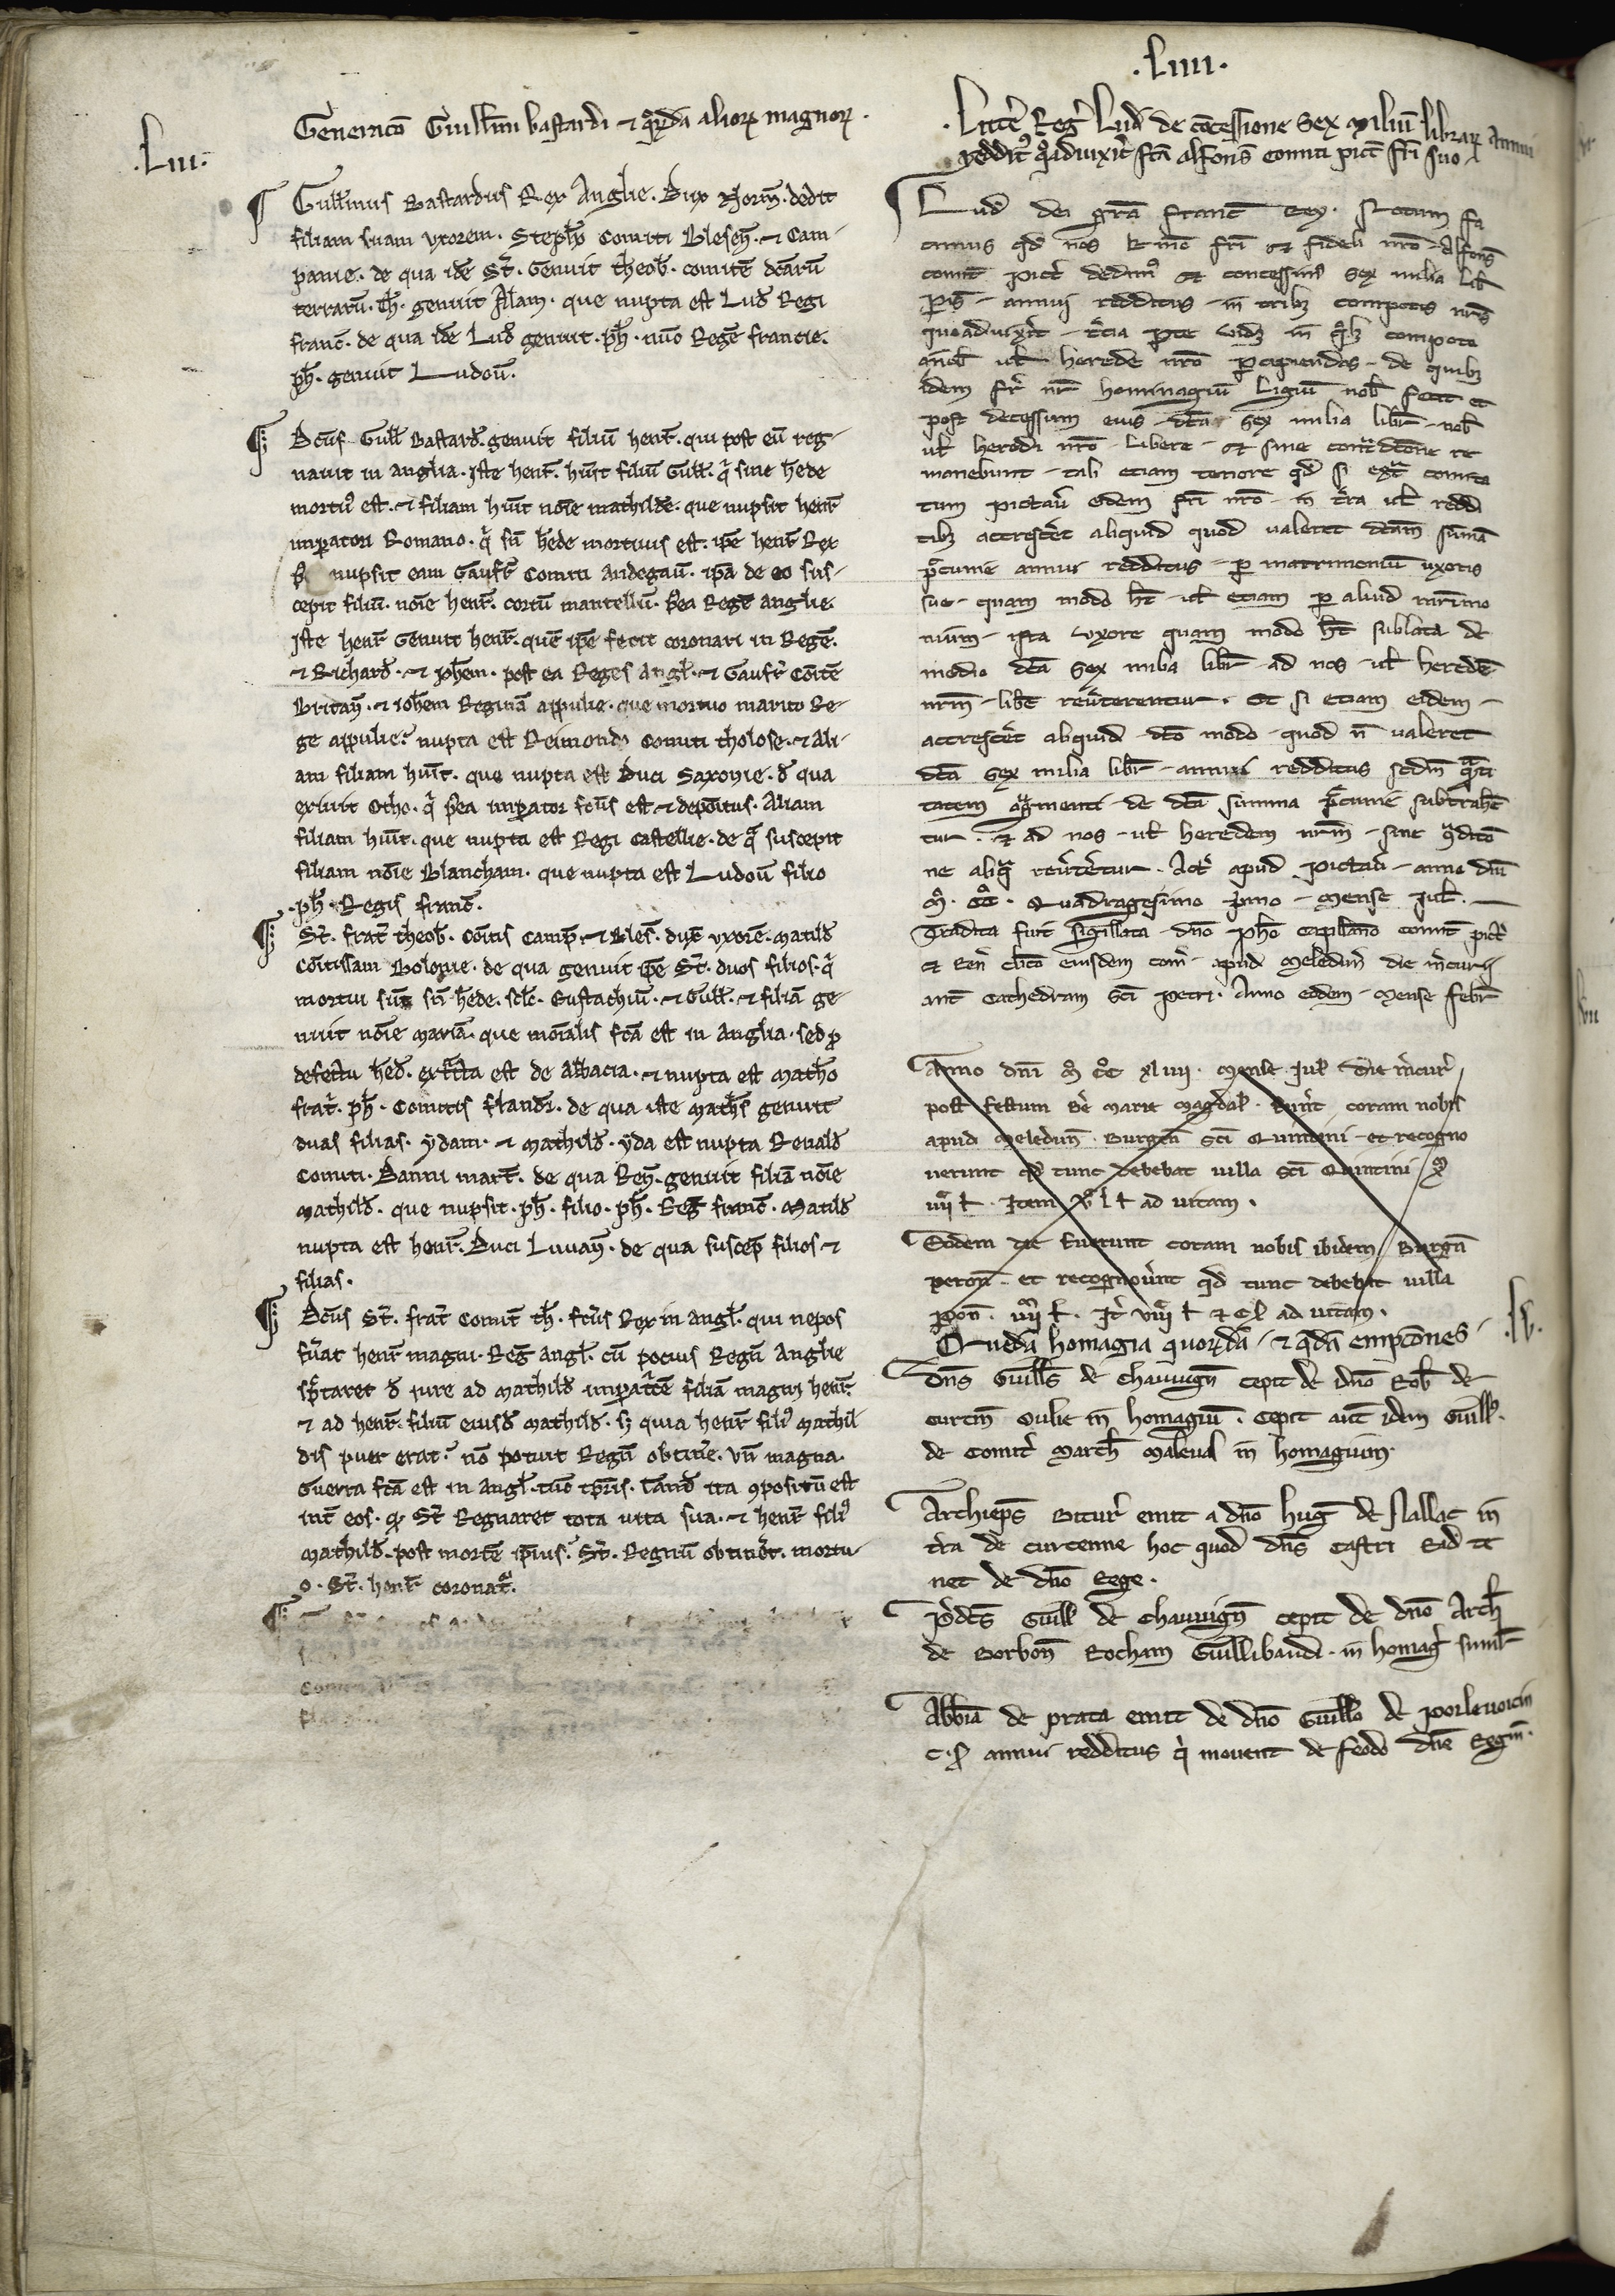 .LIII.
Generacō Guillm̄i bastardi ⁊ qͦrdā alioꝝ magnoꝝ.
Guill̄mus Bastardus Rex Anglie. Dux Norm̄. dedit
filiam suam uxorem. Steph̄o Comiti Bleseñ. ⁊ Cam-
panie. de qua idē St̄. Genuit theob̄. comitē dc̄arū
terrarū. Th̄. genuit Alam. que nupta est Lud̄ Regi
franc̄. de qua idē Lud̄ genuit. ph̄. nūc Regē francie.
ph̄. genuit Ludou̅.
Dc̄us Guill̄ Bastard̄. genuit filiū henr̄. qui post eū reg-
nauit in anglia. Iste henr̄. hūit filiū Guill̄. qͥ sine h̄ede
mortuꝰ est. ⁊ filiam hūit noīe mathildē. que nupsit henr̄
imꝑatori Romano. qͥ sn̄ h̄ede mortuus est. ip̄e henr̄ Rex
nupsit eam Gaufr̄ Comiti andegau̅. ip̄a de eo sus-
cepit filiū. noīe henr̄. cortū mantellū. p̄ea Regē anglie.
Iste henr̄ Genuit henr̄. quē ip̄e fecit coronari in Regē.
⁊ Richard̄. ⁊ Joh̄em. post ea Reges angl̄. ⁊ Gaufr̄ Cōitē
Britañ. ⁊ Ioh̄em Reginā appulie. que mortuo marito Re-
ge appulie. nupta est Reimondo Comiti tholose. ⁊ Ali-
am filiam hūit. que nupta est Duci Saxonie. d̄ qua
exiuit Otho. qͥ p̄ea imꝑator fc̄us est ⁊ depōitus. Aliam
filiam hūit. que nupta est Regi Castellie. de qͣ suscepit
filiam noīe Blancham. que nupta est Ludou̅ filio
.ph̄. Regis franc̄.
St̄. frat̄ theob̄. cōitis Camp̄. ⁊ Bles̄. duxt̄ uxorē. matild̄
Cōitissam Bolonie. de qua genuit ip̄e St̄. duos filios. qͥ
mortui sūt sn̄ h̄ede. scl̄c̄. Eustachiū. ⁊ Guill̄. ⁊ filiā ge-
nuit noīe mariā. que moīalis fc̄a est in anglia. sed ꝓ
defectu h̄ed̄. extͣcta est de Abb̄acia. ⁊ nupta est math̄o
frat̄. ph̄. Comitis flandr̄. de qua iste math̄s genuit
duas filias. ydam. ⁊ mathild̄. yda est nupta Renald̄
Comiti. Danni mart̄. de qua Reñ. genuit filiā noīe
mathild̄. que nupsit. ph̄. filio. ph̄. Reḡ franc̄. Matild̄
nupta est henr̄. Duci Luuañ. de qua suscep̄ filios ⁊
filias.
Dc̄us St̄. frat̄ Comit̄ th̄. fc̄us Rex in angl̄. qui nepos
fūat henr̄ magni. Reḡ angl̄. cū pocius Regn̄ Anglie
sp̄taret d̄ iure ad mathild̄ imꝑatͥcē filiā magni henr̄
⁊ ad henr̄. filiū eiusd̄ mathild̄. sꝫ quia henr̄ filiꝰ mathil
dis puer erat. nō potuit Regn̄ obtinēe. Vn̄ magna.
Guerra fc̄a est in angl̄. tūc tp̄ris. Tand̄ ita ꝯpositū est
int̄ eos. qͦ St̄ Regnaret tota uita sua. ⁊ henr̄ filiꝰ
mathild̄. post mortē ip̄ius. St̄. Regnū obtinēt. mortu-
o. St̄. henr̄ coronatͬ.
.LIIII.
.Litt̄e Reḡ Lud̄ de cōcessione sex miliū librar̄ Annui
reddit̄ꝰ qͦaduixīt fc̄a alfons̄ comiti pict̄ frī suo.
Lud̄ dei gr̄a Franc̄ Rex. Notum fa
cimus qd̄ nos k̄mo frī et fideli nr̄o Alfons̄
comit̄ pict̄ dedimꝰ et concessimꝰ sex milia lib̄
par̄ - annui redditus - in tribꝫ compotis nr̄is
quoaduixīt - t̄cia ꝑte uidꝫ in qͦlꝫ compoto
a nob̄ ul̄ herede nr̄o ꝑcipiendas - de quibꝫ
idem fr̄ nr̄ hominagiū Ligiū nob̄ fecit et
post decessum eius - dc̄a sex milia libr̄ - nob̄
ul̄ heredi nr̄o - libere - et sine contͣdc̄one re
manebunt - tali etiam tenore qd̄ si extͣ comita
tum pictau̅ eidem frī nr̄o - in t̄ra ul̄ reddi
tibꝫ accrescēt aliquid quod ualeret dc̄am sūmā
pͨcunie annui redditus - ꝑ matrimoniū uxoris
sue - quam modo h̄t - ul̄ etiam ꝑ aliud mr̄imo
nium - ista uxore quam modo h̄t sublata de
medio dc̄a sex milia libr̄ - ad nos - ul̄ heredē
nr̄m - libē reu̅terentur. Et si etiam eidem -
accrescēt aliquid dc̄o modo - quod n̄ ualeret
dc̄a sex milia libr̄ - annui redditus scdm̄ qͣnti
tatem augmenti - de dc̄a summa pͨcunie subtrahēt
tur. et ad nos - ul̄ heredem nr̄m - sine ꝯdic̄o
ne aliqͣ reu̅tētur. Act̄ apud Pictau̅ - anno dn̄i
M̊. CC̊. Quadragesimo pͥmo - Mense Jul̄.
Tradita fuit sigillata - dn̄o Ph̄o capll̄ano comit̄ pict̄
et Reñ cl̄ico eiusdem com̄ - apud Meleduñ die m̄curii
ant̄ Cathedram sc̄i Petri. Anno eodem - Mense febr̄
Anno dn̄i M̊ CC̊ xl iiij. Mense Jul̄ die m̄cur̄
post festum be̅ marie magdal̄. Fūnt coram nobis
apud Meleduñ. Burgeñ sc̄i Quintini - et recogno
uerunt qd̄ tunc debebat uilla sc̄i Quintini
Item ad uitam.
Eodem die fuerunt coram nobis ibidem Burgeñ
peroñ. et recognoūnt qd̄ tunc debebat uilla
ad uitam.
.LV.
Quedā homagia quorūdā. ⁊ qͦdā empc̄ones.
Dn̄s Guill̄s de Chauuigñ cepit de dn̄o Rob̄ de
curtiñ Oulie in homagiū. Cepit aut̄ idem Guill̄s.
de Comit̄ March̄ Maleual in homagium.
Archiep̄s Bitur̄ emit a dn̄o Hug̅ de Nallac in
t̄ra de Curcenne hoc quod dn̄s Castri Rad̄ te
net de dn̄o Rege.
P̄dc̄s Guill̄ de Chauuigñ cepit de dn̄o Arch̄
de Borboñ Rocham Guillibaudi. in homag̅ simil̄r
Abb̄ia de prata emit de dn̄o Guill̄o de Poorleuoicin
C. s̄ annui redditus qͥ mouent de feodo dn̄e Regiñ.